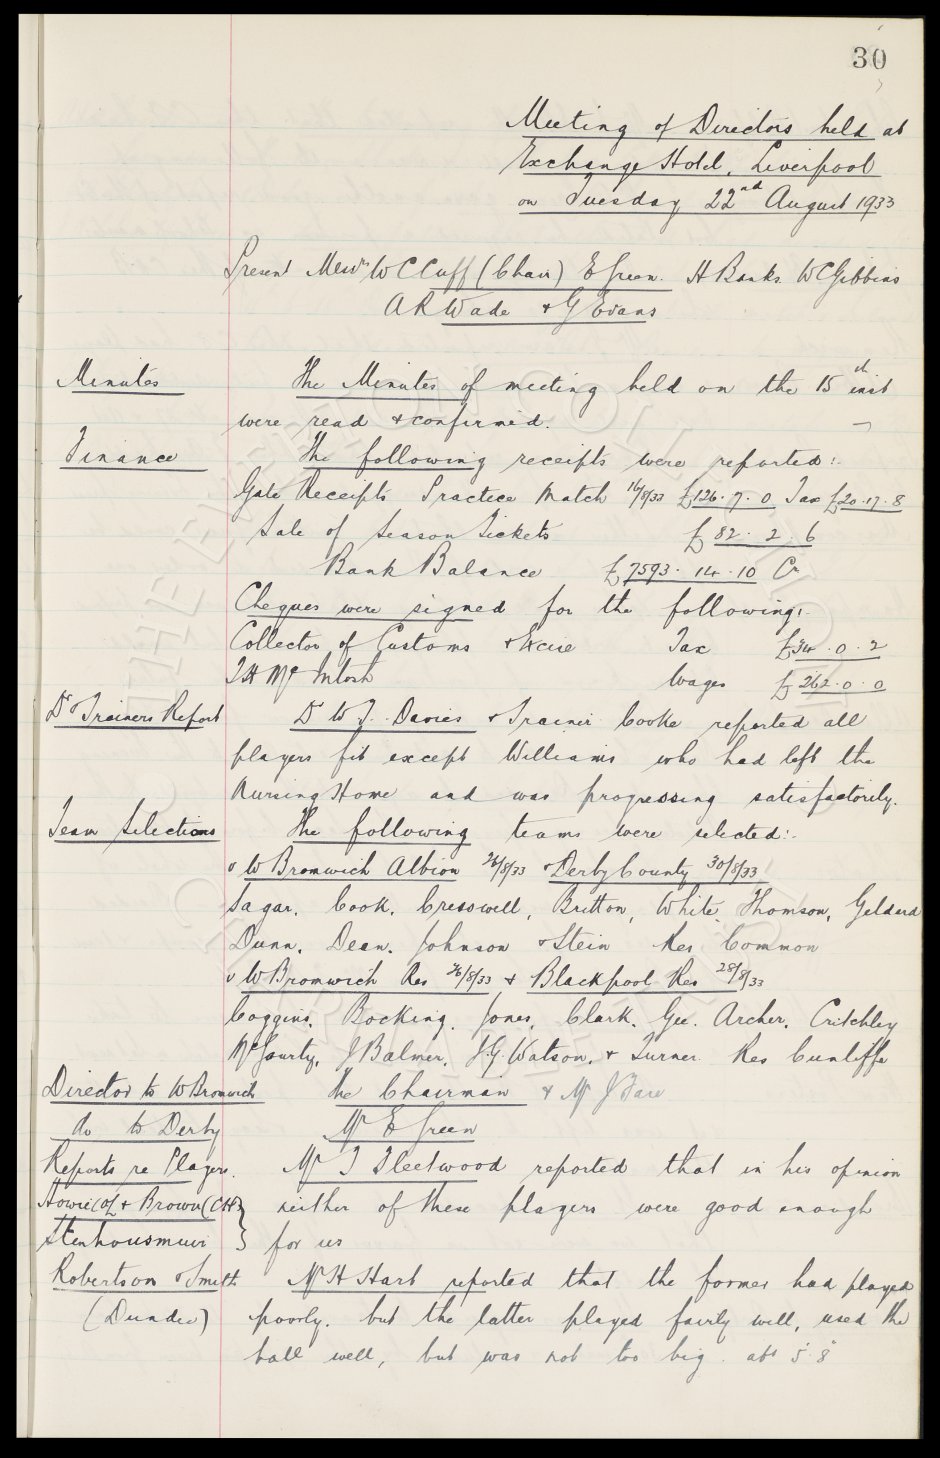 30
Meeting of Directors held at
Exchange Hotel, Liverpool
on Tuesday 22nd August 1933
Present Messrs W C Cuff (Chair) E Green. H Banks. W C Gibbins
A R Wade & G Evans
Minutes The Minutes of meeting held on the 15th inst
were read & confirmed.
Finance The following receipts were reported:-
Gate Receipts Practice Match 16/8/33 £126.7.0 Tax £20.17.8
Sale of Season Tickets £82.2.6
Bank Balance £7593.14.10 Cr
Cheques were signed for the following:-
Collector of Customs & Excise Tax £34.0.2
T H McIntosh Wages £262.0.0
Dr & Trainers Report Dr W J. Davies & Trainer Cooke reported all
players fit except Williams who had left the
Nursing Home and was progressing satisfactorily.
Team Selections The following teams were selected:-
v W Bromwich Albion 26/8/33 & Derby County 30/8/33
Sagar. Cook. Cresswell, Britton, White, Thomson, Geldard
Dunn. Dean. Johnson & Stein Res Common
v W Bromwich Res 26/8/33 & Blackpool Res 28/8/33
Coggins. Bocking. Jones. Clark. Gee. Archer. Critchley
McGourty, J Balmer, J.G. Watson. & Turner. Res Cunliffe
Director to W Bromwich The Chairman & Mr J Fare
do to Derby Mr E Green
Reports re Players. Mr T Fleetwood reported that in his opinion
Howie (OL & Brown (CH) neither of these players were good enough
Stenhousmuir } for us
Robertson & Smith Mr H Hart reported that the former had played
(Dundee) poorly. but the latter played fairly well, used the
ball well, but was not too big. abt 5'.8"
THE EVERTON
COLLECTION